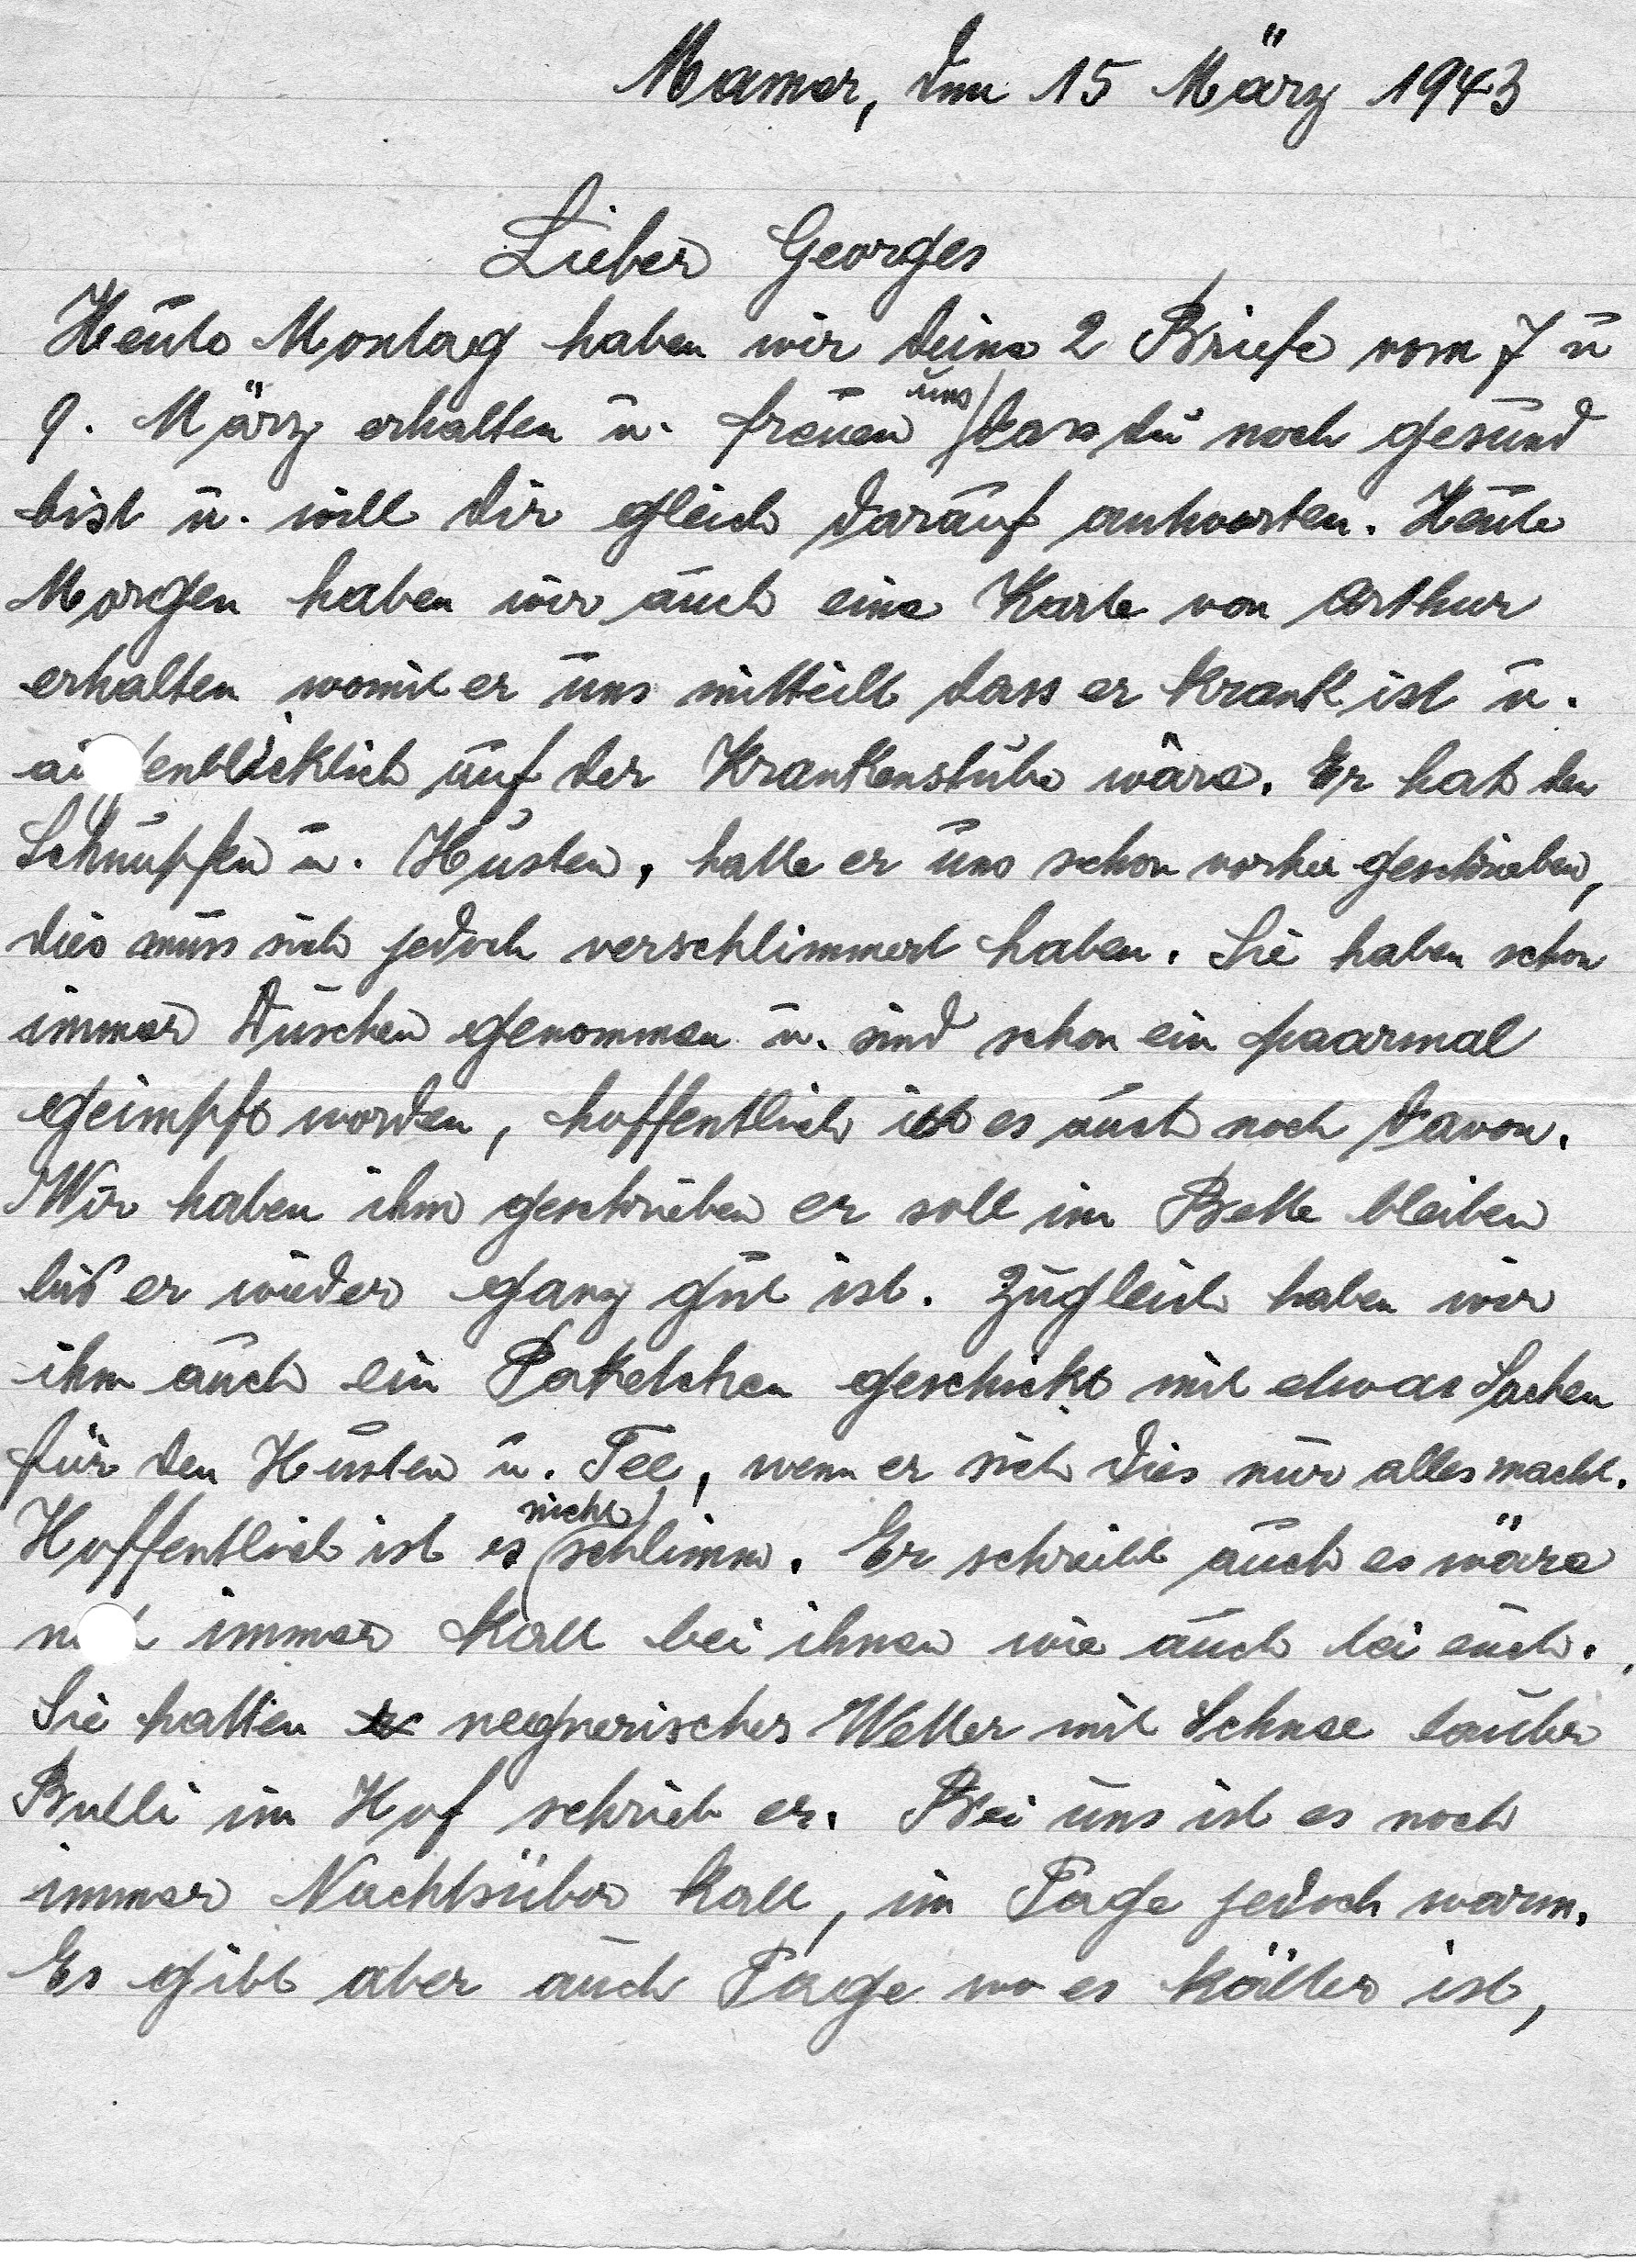 Mamer, den 15 März 1943
Lieber Georges
Heute Montag haben wir deine 2 Briefe vom 7 u
9. März erhalten u. freuen uns dass du noch gesund
bist u. will dir gleich darauf antworten. Heute
Morgen haben wir auch eine Karte von Arthur
erhalten womit er uns mitteilt dass er krank ist u.
augenblicklich auf der Krankenstube wäre. Er hat den
Schnupfen u. Husten, hatte er uns schon vorher geschrieben,
dies muss sich jedoch verschlimmert haben. Sie haben schon
immer Duschen genommen u. sind schon ein paarmal
geimpft worden, hoffentlich ist es auch noch davon.
Wir haben ihm geschrieben er soll im Bette bleiben
bis er wieder ganz gut ist. Zugleich haben wir
ihm auch ein Paketchen geschickt mit etwas Sachen
für den Husten u. Tee, wenn er sich dies nur alles macht.
Hoffentlich ist es nicht schlimm. Er schreibt auch es wäre
noch immer kalt bei ihnen wie auch bei euch.
Sie hatten regnerisches Wetter mit Schnee
Bulli im Hof schrieb er. Bei uns ist es noch
immer Nachtsüber kalt, im Tage jedoch warm.
Es gibt aber auch Tage wo es kälter ist,